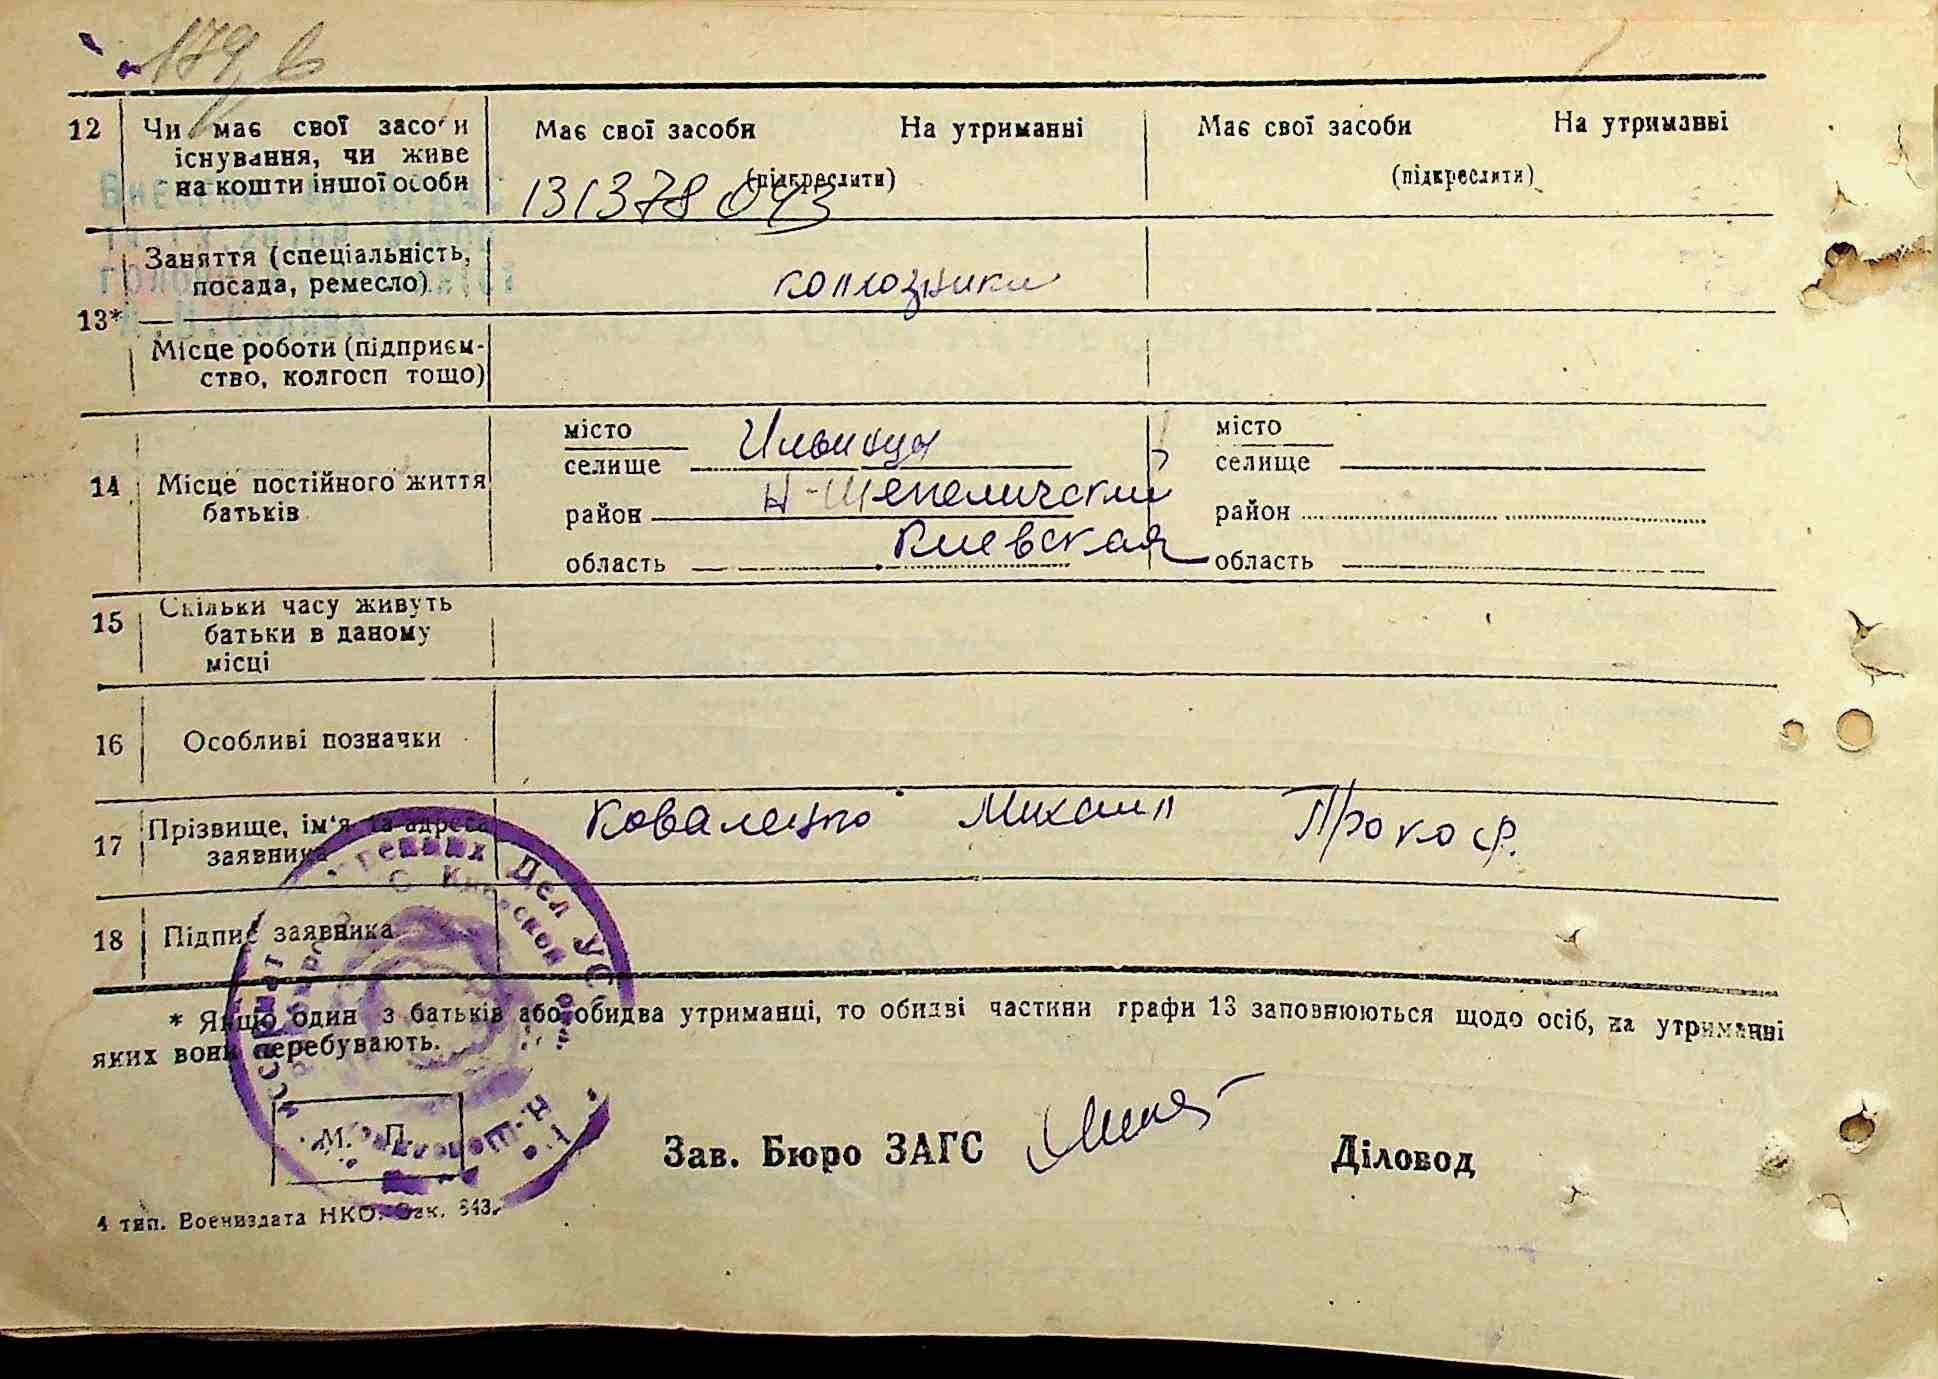 179 в
12 Чи має свої засоби Має свої засоби На утриманні Має свої засоби На утриманні
існування, чи живе
на кошти іншої особи (підкреслити) (підкреслити)
131378 043
Заняття (спеціальність,
посада, ремесло) колхозники
13*
Місце роботи (підприєм-
ство, колгосп тощо)
місто місто
селище Ильинцы селище
14 Місце постійного життя
батьків
район Н-Шепеличский район
область Киевская область
15 Скільки часу живуть
батьки в даному
місці
16 Особливі позначки
17 Прізвище, ім'я та адреса Коваленко Михаил Прокоф.
заявника
18 Підпис заявника
* Якщо один з батьків або обидва утриманці, то обидві частини графи 13 заповнюються щодо осіб, на утриманні
яких вони перебувають.
М. П.
Зав. Бюро ЗАГС Діловод
4 тип. Воениздата НКО. Зак. 643.